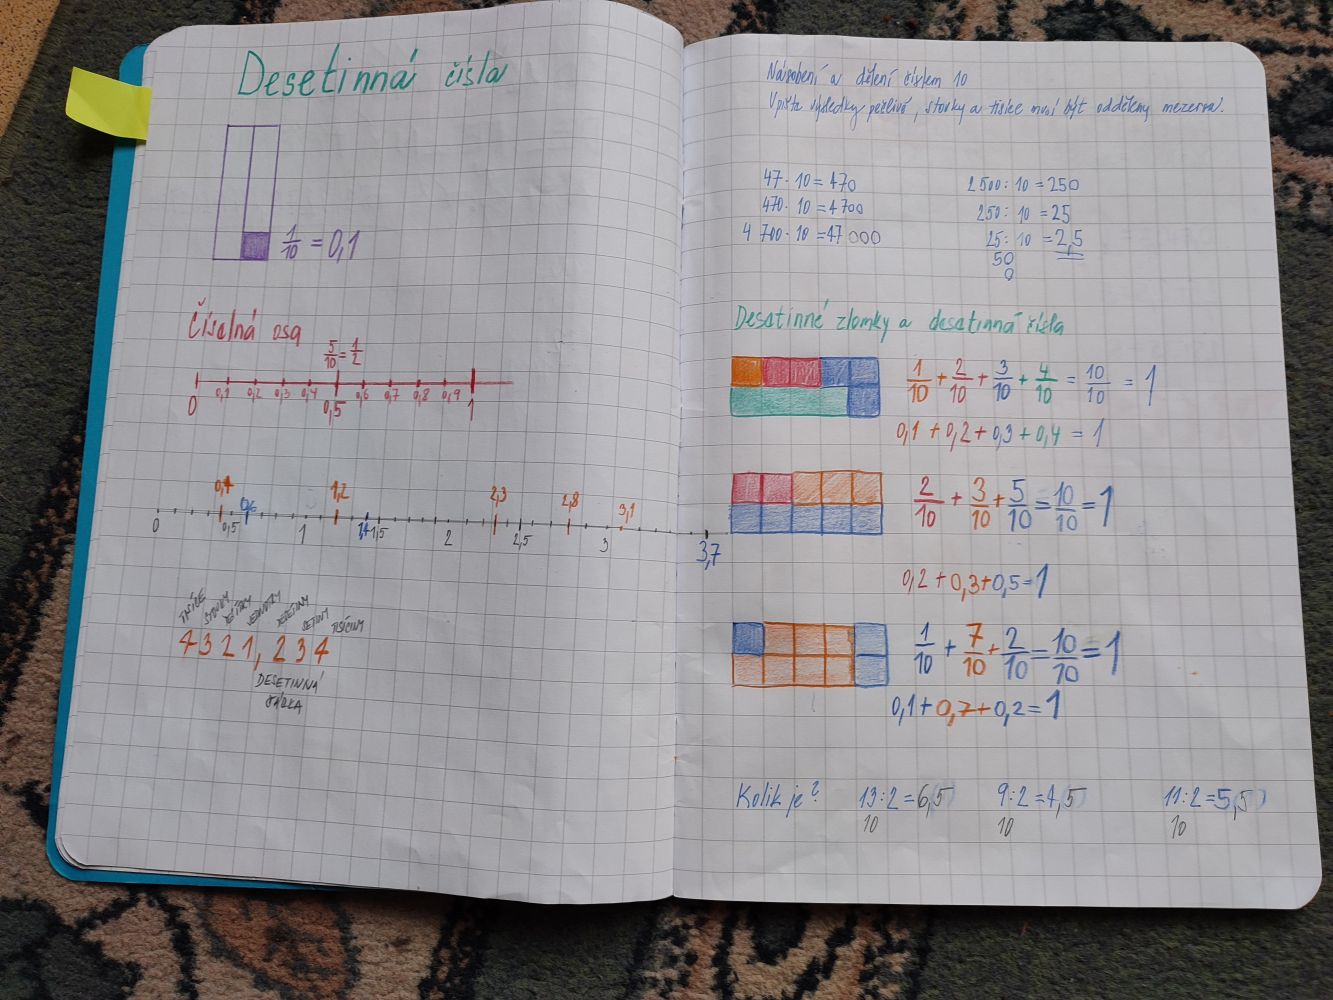 Desetinná čísla
1/10 = 0,1
Číselná osa
5/10 = 1/2
0 0,1 0,2 0,3 0,4 0,5 0,6 0,7 0,8 0,9 1
0,4 0,6 1,2 2,3 2,8 3,1
0 0,5 1 1,4 1,5 2 2,5 3 3,7
TISÍCE STOVKY DESÍTKY JEDNOTKY DESETINY SETINY TISÍCINY
4321,234
DESETINNÁ
ČÁRKA
Násobení a dělení číslem 10
Vpište výsledky pečlivě, stovky a tisíce musí být odděleny mezerou.
47 · 10 = 470
470 · 10 = 4700
4 700 · 10 = 47 000
2 500 : 10 = 250
250 : 10 = 25
25 : 10 = 2,5
50
0
Desetinné zlomky a desetinná čísla
1/10 + 2/10 + 3/10 + 4/10 = 10/10 = 1
0,1 + 0,2 + 0,3 + 0,4 = 1
2/10 + 3/10 + 5/10 = 10/10 = 1
0,2 + 0,3 + 0,5 = 1
1/10 + 7/10 + 2/10 = 10/10 = 1
0,1 + 0,7 + 0,2 = 1
Kolik je? 13 : 2 = 6,5 9 : 2 = 4,5 11 : 2 = 5,5
10 10 10